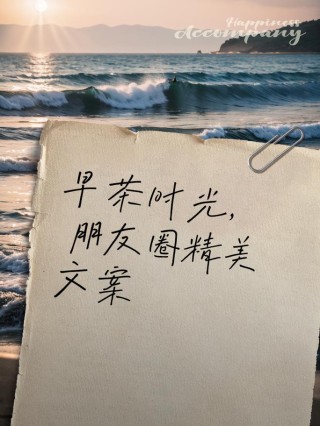 Happiness
Accompany
早茶时光,
朋友圈精美
文案